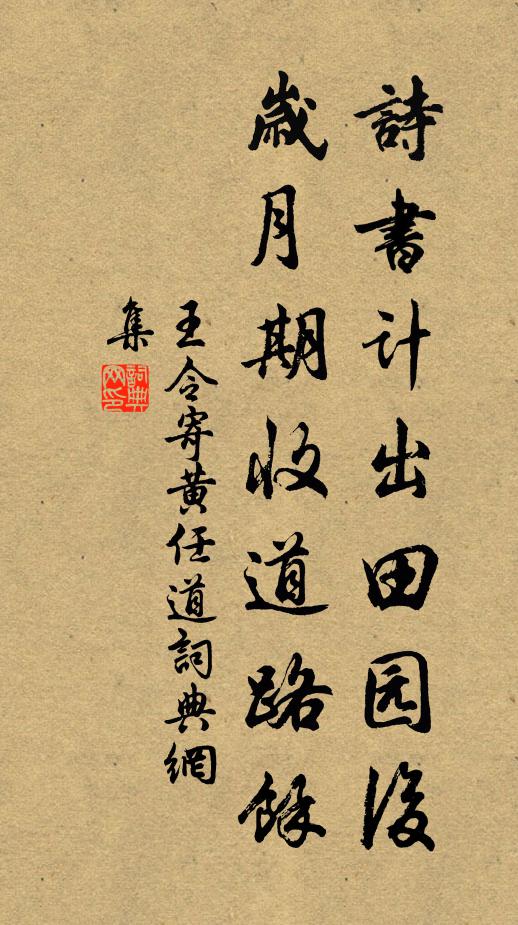 詩書计出田园後
歳月期收道路餘
王令寄黄任道詞典網
集
詞典
网印